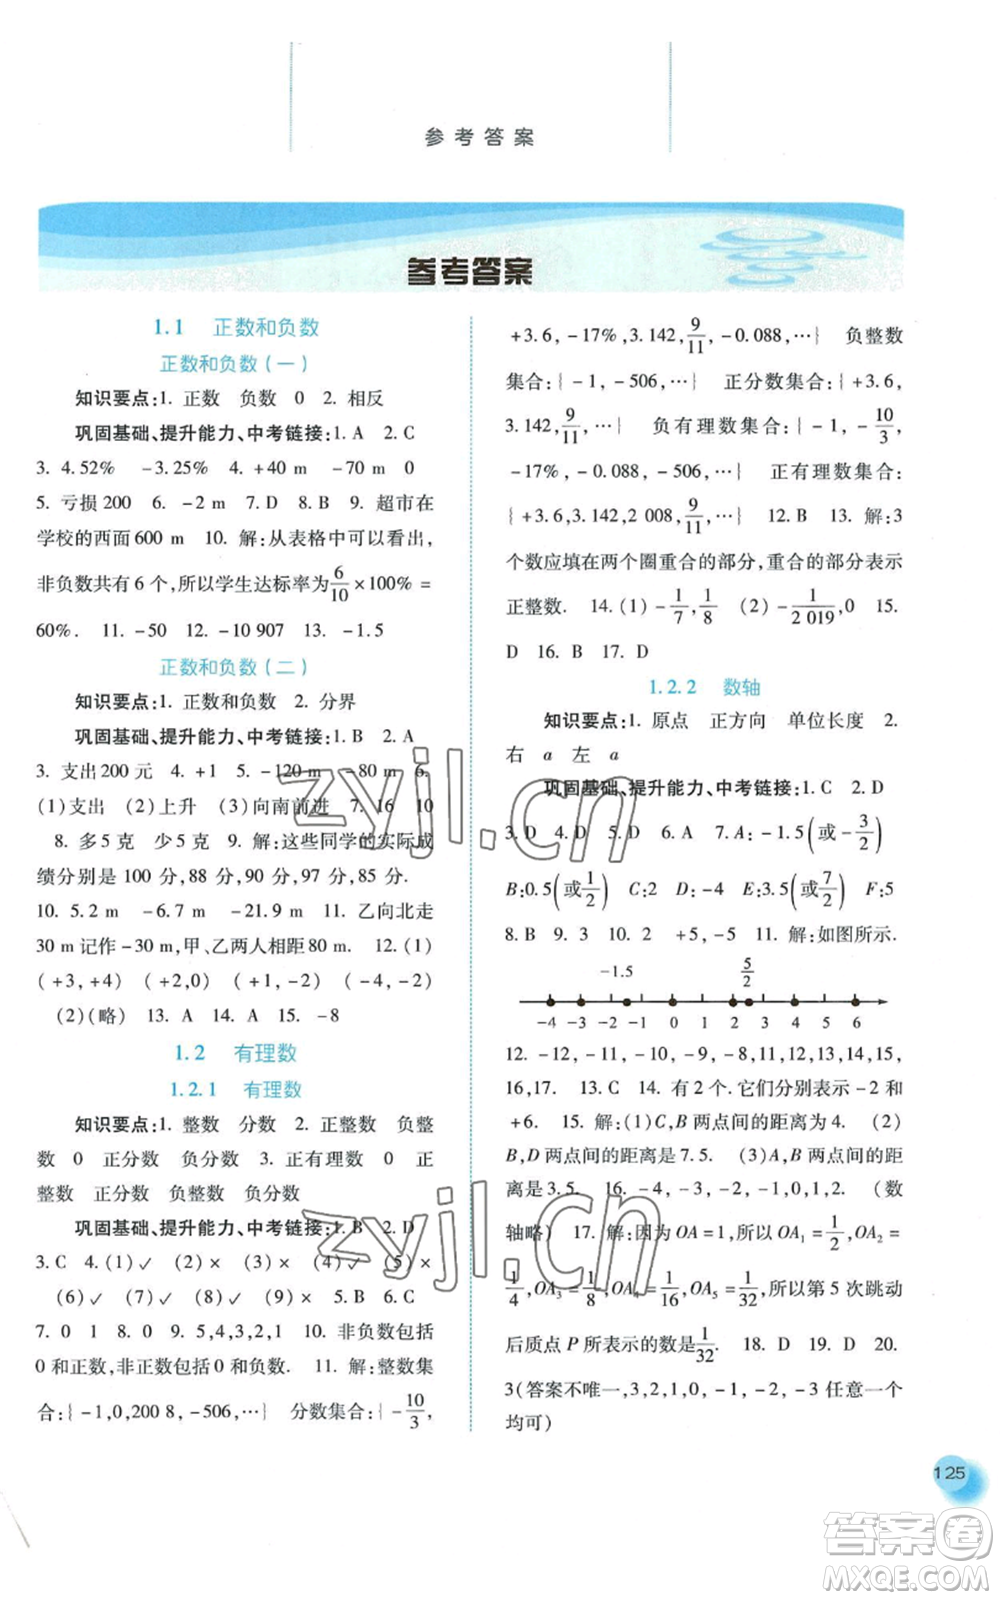 参考答案
参考答案
1.1 正数和负数
正数和负数(一)
知识要点:1. 正数 负数 0 2. 相反
巩固基础、提升能力、中考链接:1. A 2. C
3. 4.52% -3.25% 4. +40 m -70 m 0
5. 亏损200 6. -2 m 7. D 8. B 9. 超市在
学校的西面600 m 10. 解:从表格中可以看出,
非负数共有 6 个,所以学生达标率为6/10×100% =
60%. 11. -50 12. -10 907 13. -1.5
正数和负数(二)
知识要点:1. 正数和负数 2. 分界
巩固基础、提升能力、中考链接:1. B 2. A
3. 支出200 元 4. +1 5. -120 m -80 m 6.
(1)支出 (2)上升 (3)向南前进 7. 16 10
8. 多5 克 少5 克 9. 解:这些同学的实际成
绩分别是 100 分,88 分,90 分,96 分,85 分.
10. 5.2 m -6.7 m -21.9 m 11. 乙向北走
30 m 记作-30 m,甲、乙两人相距80 m. 12. (1)
(+3,+4) (+2,0) (+1,-2) (-4,-2)
(2)(略) 13. A 14. A 15. -8
1.2 有理数
1.2.1 有理数
知识要点:1. 整数 分数 2. 正整数 负整
数 0 正分数 负分数 3. 正有理数 0 正
整数 正分数 负整数 负分数
巩固基础、提升能力、中考链接:1. B 2. D
3. C 4. (1)✓ (2)× (3)× (4)✓ (5)×
(6)✓ (7)✓ (8)✓ (9)× 5. B 6. C
7. 0 1 8. 0 9. 5,4,3,2,1 10. 非负数包括
0 和正数,非正数包括 0 和负数. 11. 解:整数集
合:{-1,0,200 8,-506,…} 分数集合:{-10/3,
+3.6,-17%,3.142,9/11,-0.088,…} 负整数
集合:{-1,-506,…} 正分数集合:{+3.6,
3.142,9/11,…} 负有理数集合:{-1,-10/3,
-17%,-0.088,-506,…} 正有理数集合:
{+3.6,3.142,2 008,9/11,…} 12. B 13. 解:3
个数应填在两个圈重合的部分,重合的部分表示
正整数. 14. (1)-1/7,1/8 (2)-1/2 019,0 15.
D 16. B 17. D
1.2.2 数轴
知识要点:1. 原点 正方向 单位长度 2.
右 a 左 a
巩固基础、提升能力、中考链接:1. C 2. D
3. D 4. D 5. D 6. A 7. A:-1.5(或-3/2)
B:0.5(或1/2) C:2 D:-4 E:3.5(或7/2) F:5
8. B 9. 3 10. 2 +5,-5 11. 解:如图所示.
-1.5 5/2
-4 -3 -2 -1 0 1 2 3 4 5 6
12. -12,-11,-10,-9,-8,11,12,13,14,15,
16,17. 13. C 14. 有 2 个. 它们分别表示-2 和
+6. 15. 解:(1)C,B 两点间的距离为 4. (2)
B,D 两点间的距离是7.5. (3)A,B 两点间的距
离是3.5. 16. -4,-3,-2,-1,0,1,2. (数
轴略) 17. 解:因为 OA=1,所以 OA₁=1/2,OA₂=
1/4,OA₃=1/8,OA₄=1/16,OA₅=1/32,所以第 5 次跳动
后质点 P 所表示的数是1/32. 18. D 19. D 20.
3(答案不唯一,3,2,1,0,-1,-2,-3 任意一个
均可)
125
zyjl.cn
zyjl.cn
答案圈
MXQE.COM